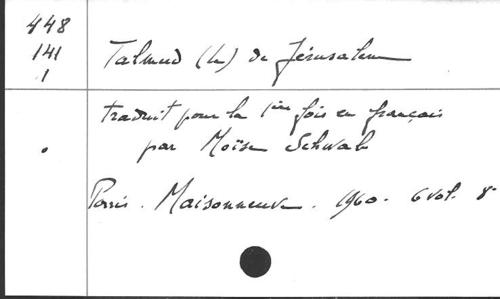 448
141
1
Talmud (Le) de Jérusalem
traduit pour la 1ère fois en français
par Moïse Schwab
Paris. Maisonneuve. 1960. 6 vol. 8°